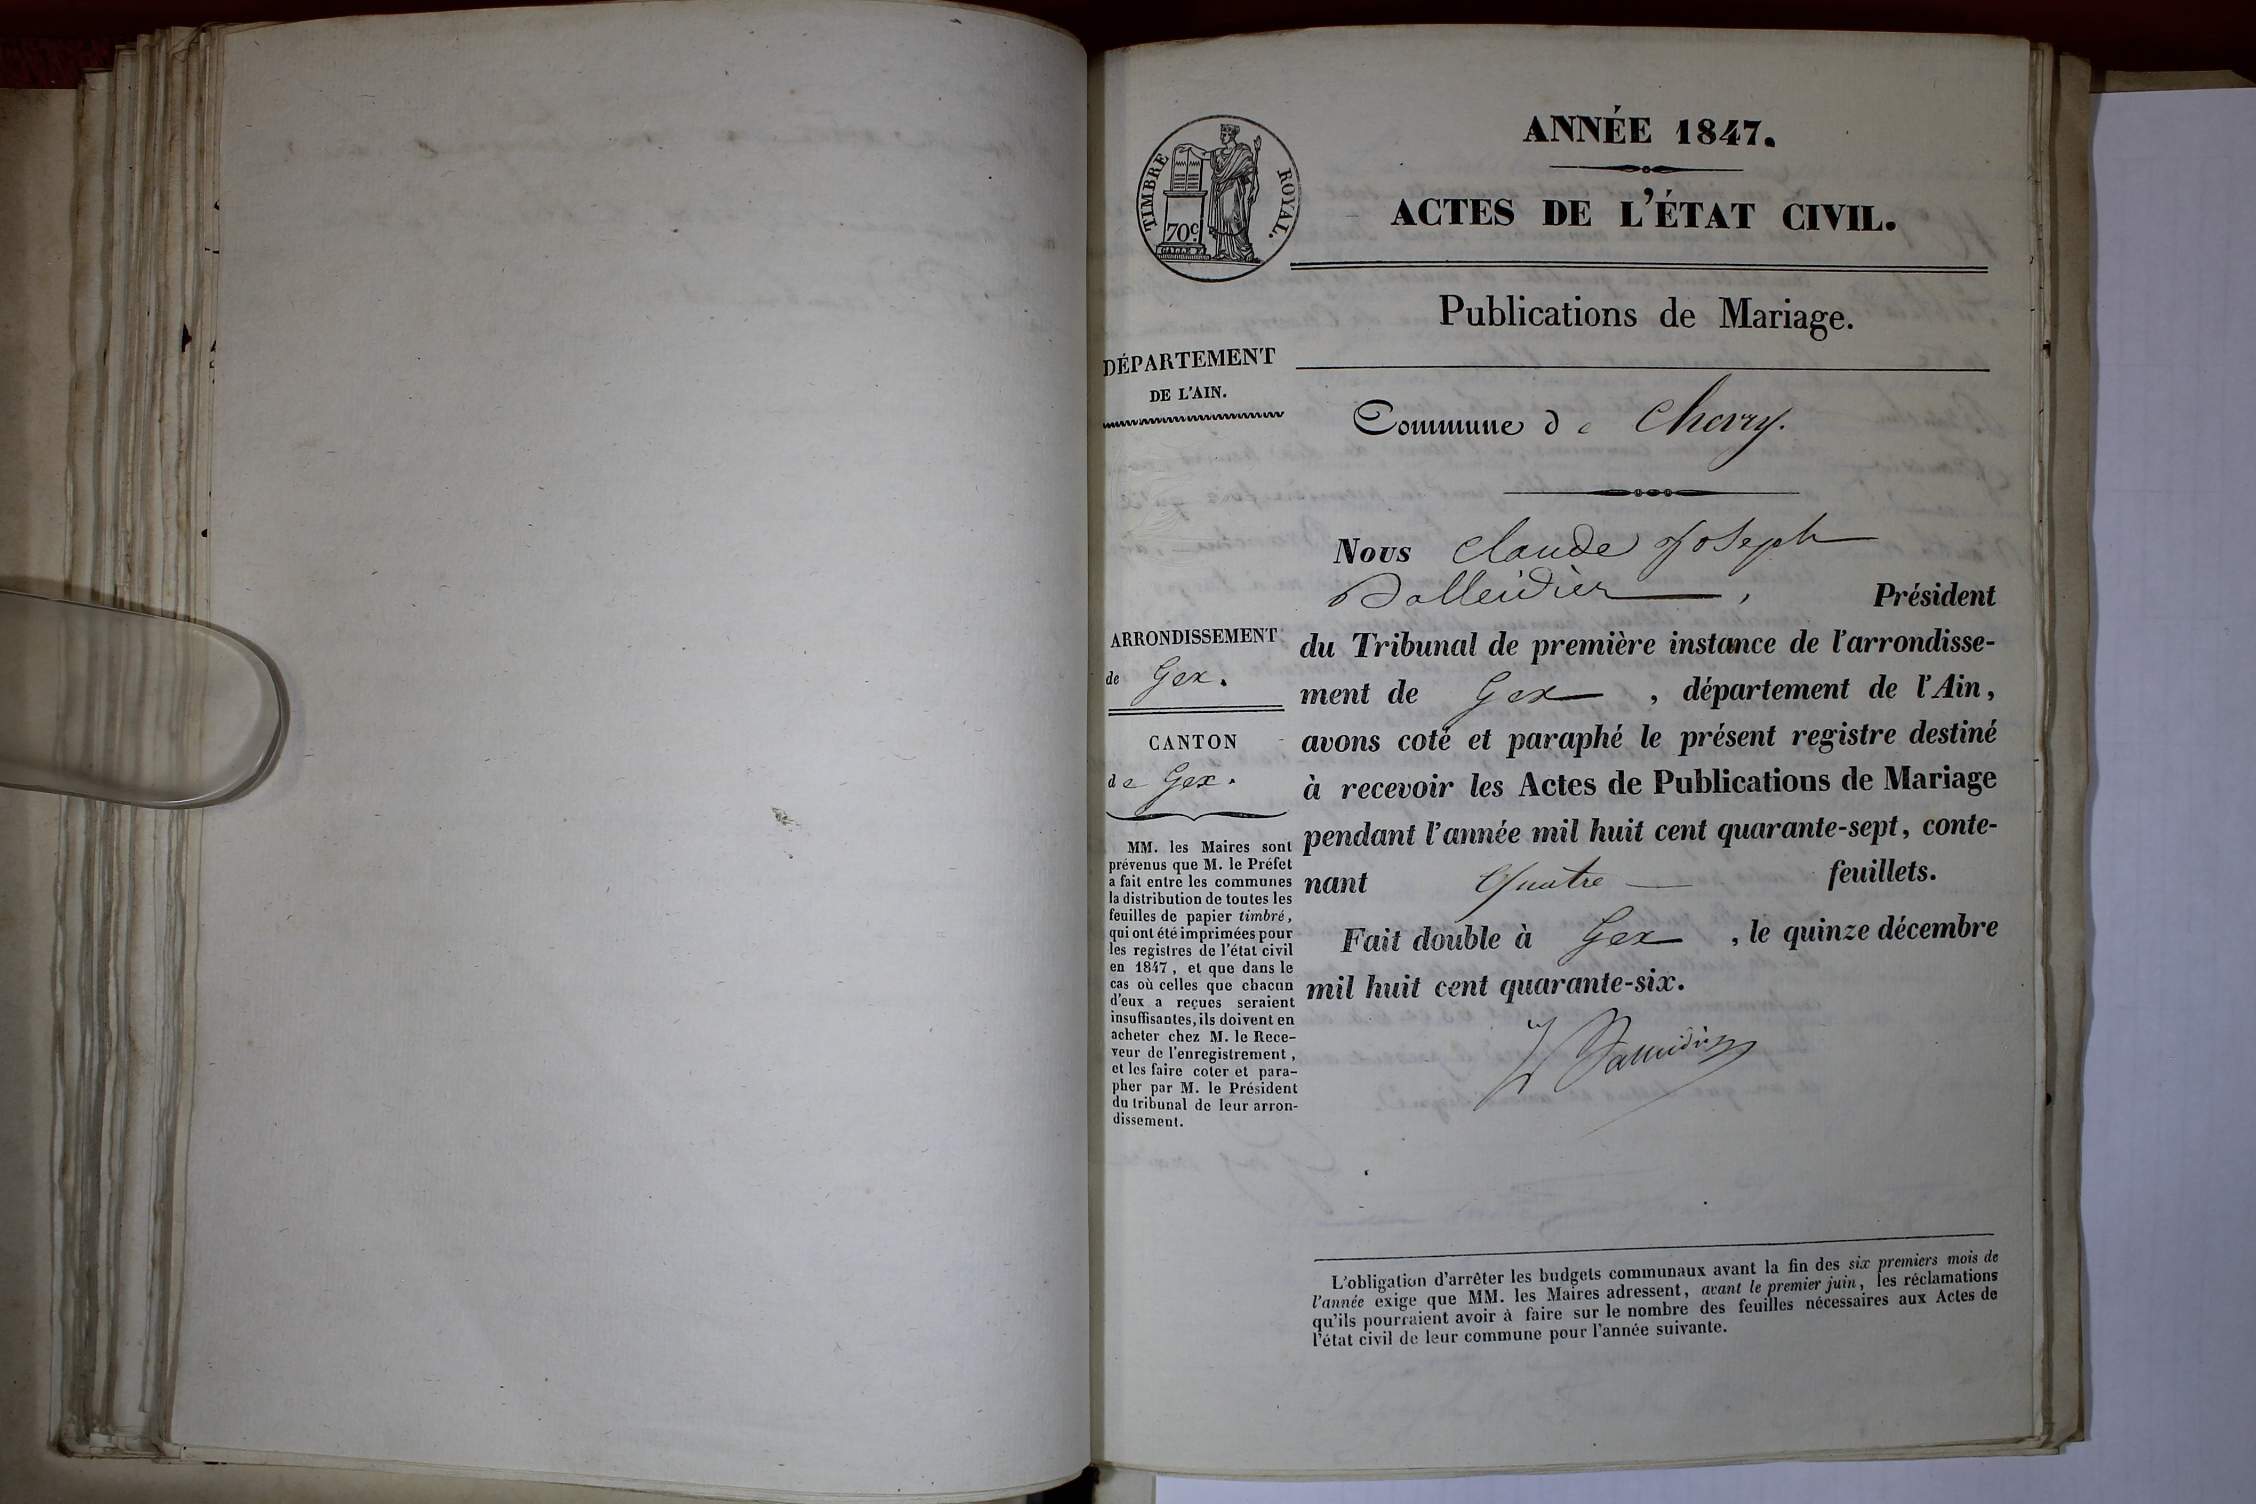 ANNÉE 1847.
ACTES DE L'ÉTAT CIVIL.
TIMBRE ROYAL.
70c
Publications de Mariage.
DÉPARTEMENT
DE L'AIN.
Commune de Chevry.
Nous Claude Joseph
Balleidier, Président
du Tribunal de première instance de l'arrondisse-
ment de Gex, département de l'Ain,
avons coté et paraphé le présent registre destiné
à recevoir les Actes de Publications de Mariage
pendant l'année mil huit cent quarante-sept, conte-
nant Quatre feuillets.
Fait double à Gex, le quinze décembre
mil huit cent quarante-six.
Balleidier
ARRONDISSEMENT
de Gex.
CANTON
de Gex.
MM. les Maires sont
prévenus que M. le Préfet
a fait entre les communes
la distribution de toutes les
feuilles de papier timbré,
qui ont été imprimées pour
les registres de l'état civil
en 1847, et que dans le
cas où celles que chacun
d'eux a reçues seraient
insuffisantes, ils doivent en
acheter chez M. le Rece-
veur de l'enregistrement,
et les faire coter et para-
pher par M. le Président
du tribunal de leur arron-
dissement.
L'obligation d'arrêter les budgets communaux avant la fin des six premiers mois de
l'année exige que MM. les Maires adressent, avant le premier juin, les réclamations
qu'ils pourraient avoir à faire sur le nombre des feuilles nécessaires aux Actes de
l'état civil de leur commune pour l'année suivante.